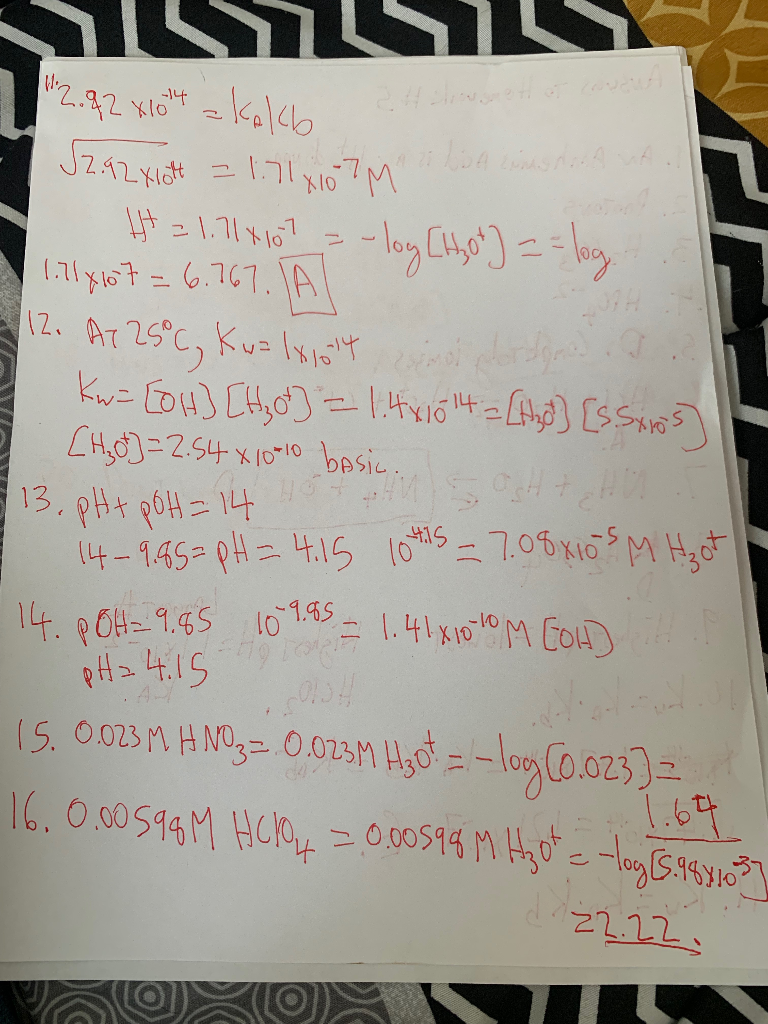 11. 2.92 x10^-14 = KaKb
√2.92x10^-14 = 1.71 x10^-7 M
H+ = 1.71 x 10^-7 = -log [H3O+] = -log
1.71 x10^-7 = 6.767. A
12. AT 25°C, Kw = 1x10^-14
Kw= [OH] [H3O+] = 1.4x10^-14 = [H3O+] [5.5x10^-5]
[H3O+] = 2.54 x 10^-10 basic.
13. pH+ pOH = 14
14 - 9.85= pH = 4.15 10^-4.15 = 7.08x10^-5 M H3O+
14. pOH= 9.85 10^-9.85 = 1.41x10^-10 M [OH]
pH= 4.15
15. 0.023 M HNO3 = 0.023M H3O+ = -log[0.023] =
1.64
16. 0.00598M HClO4 = 0.00598 M H3O+ = -log[5.98x10^-3]
=2.22.